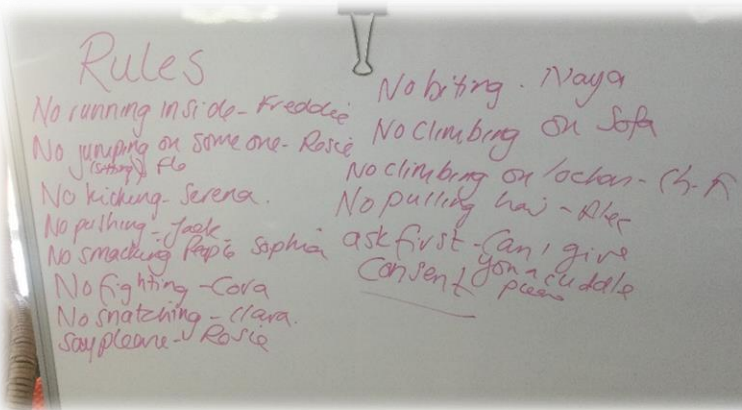 Rules
No running inside - Freddie
No jumping on someone - Rosie
(sitting) Flo
No kicking - Serena.
No pushing - Jack
No smacking People Sophia
No fighting - Cora
No snatching - Clara.
Say please - Rosie
No biting. Naya
No Climbing on Sofa
No climbing on
No pulling hair - Alec
ask first - Can I give
you a cuddle
please
Consent